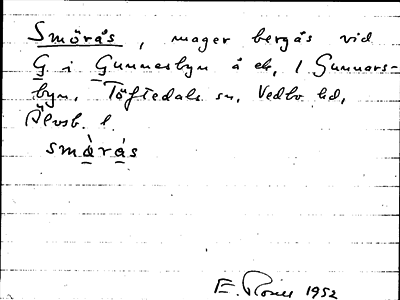 Smörås, mager bergås vid
G i Gunnarsbyn å ek, 1 Gunnars-
byn, Töftedals sn, Vedbo hd,
Älvsb. l.
smàrás
E. Rosell 1952